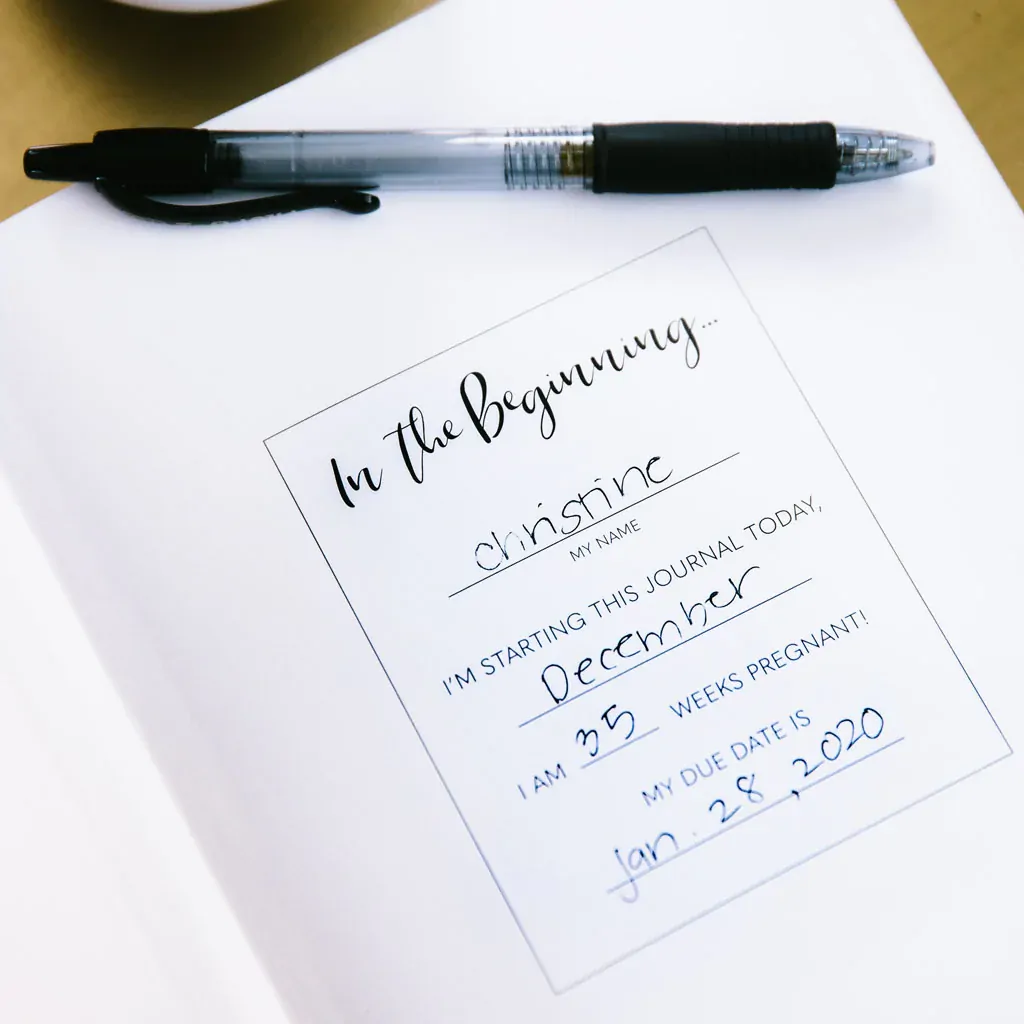 In The Beginning...
christine
MY NAME
I'M STARTING THIS JOURNAL TODAY,
December
I AM 35 WEEKS PREGNANT!
MY DUE DATE IS
Jan. 28, 2020